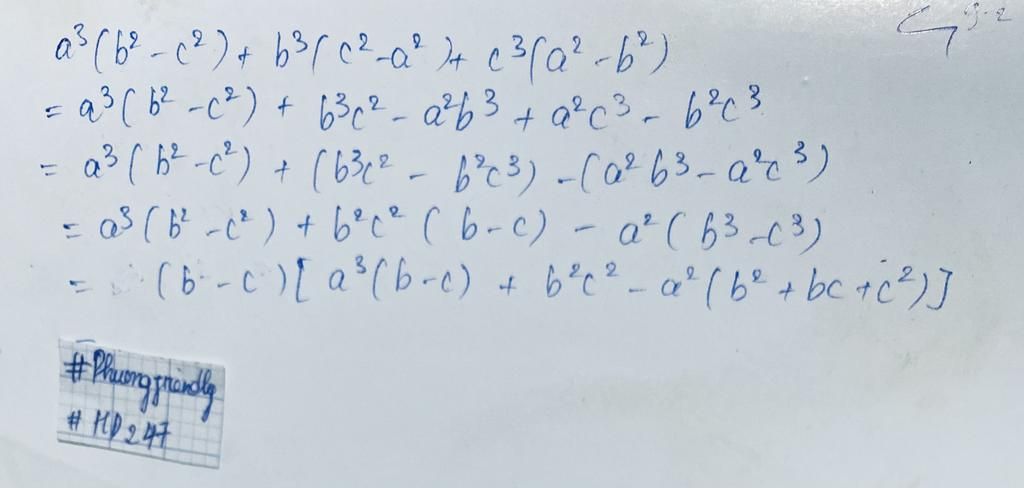 a³(b² - c²) + b³(c² - a²) + c³(a² - b²)
= a³(b² - c²) + b³c² - a²b³ + a²c³ - b²c³
= a³(b² - c²) + (b³c² - b²c³) - (a²b³ - a²c³)
= a³(b² - c²) + b²c²(b - c) - a²(b³ - c³)
= (b - c)[a³(b - c) + b²c² - a²(b² + bc + c²)]
#Phuongfriendly
#HD247